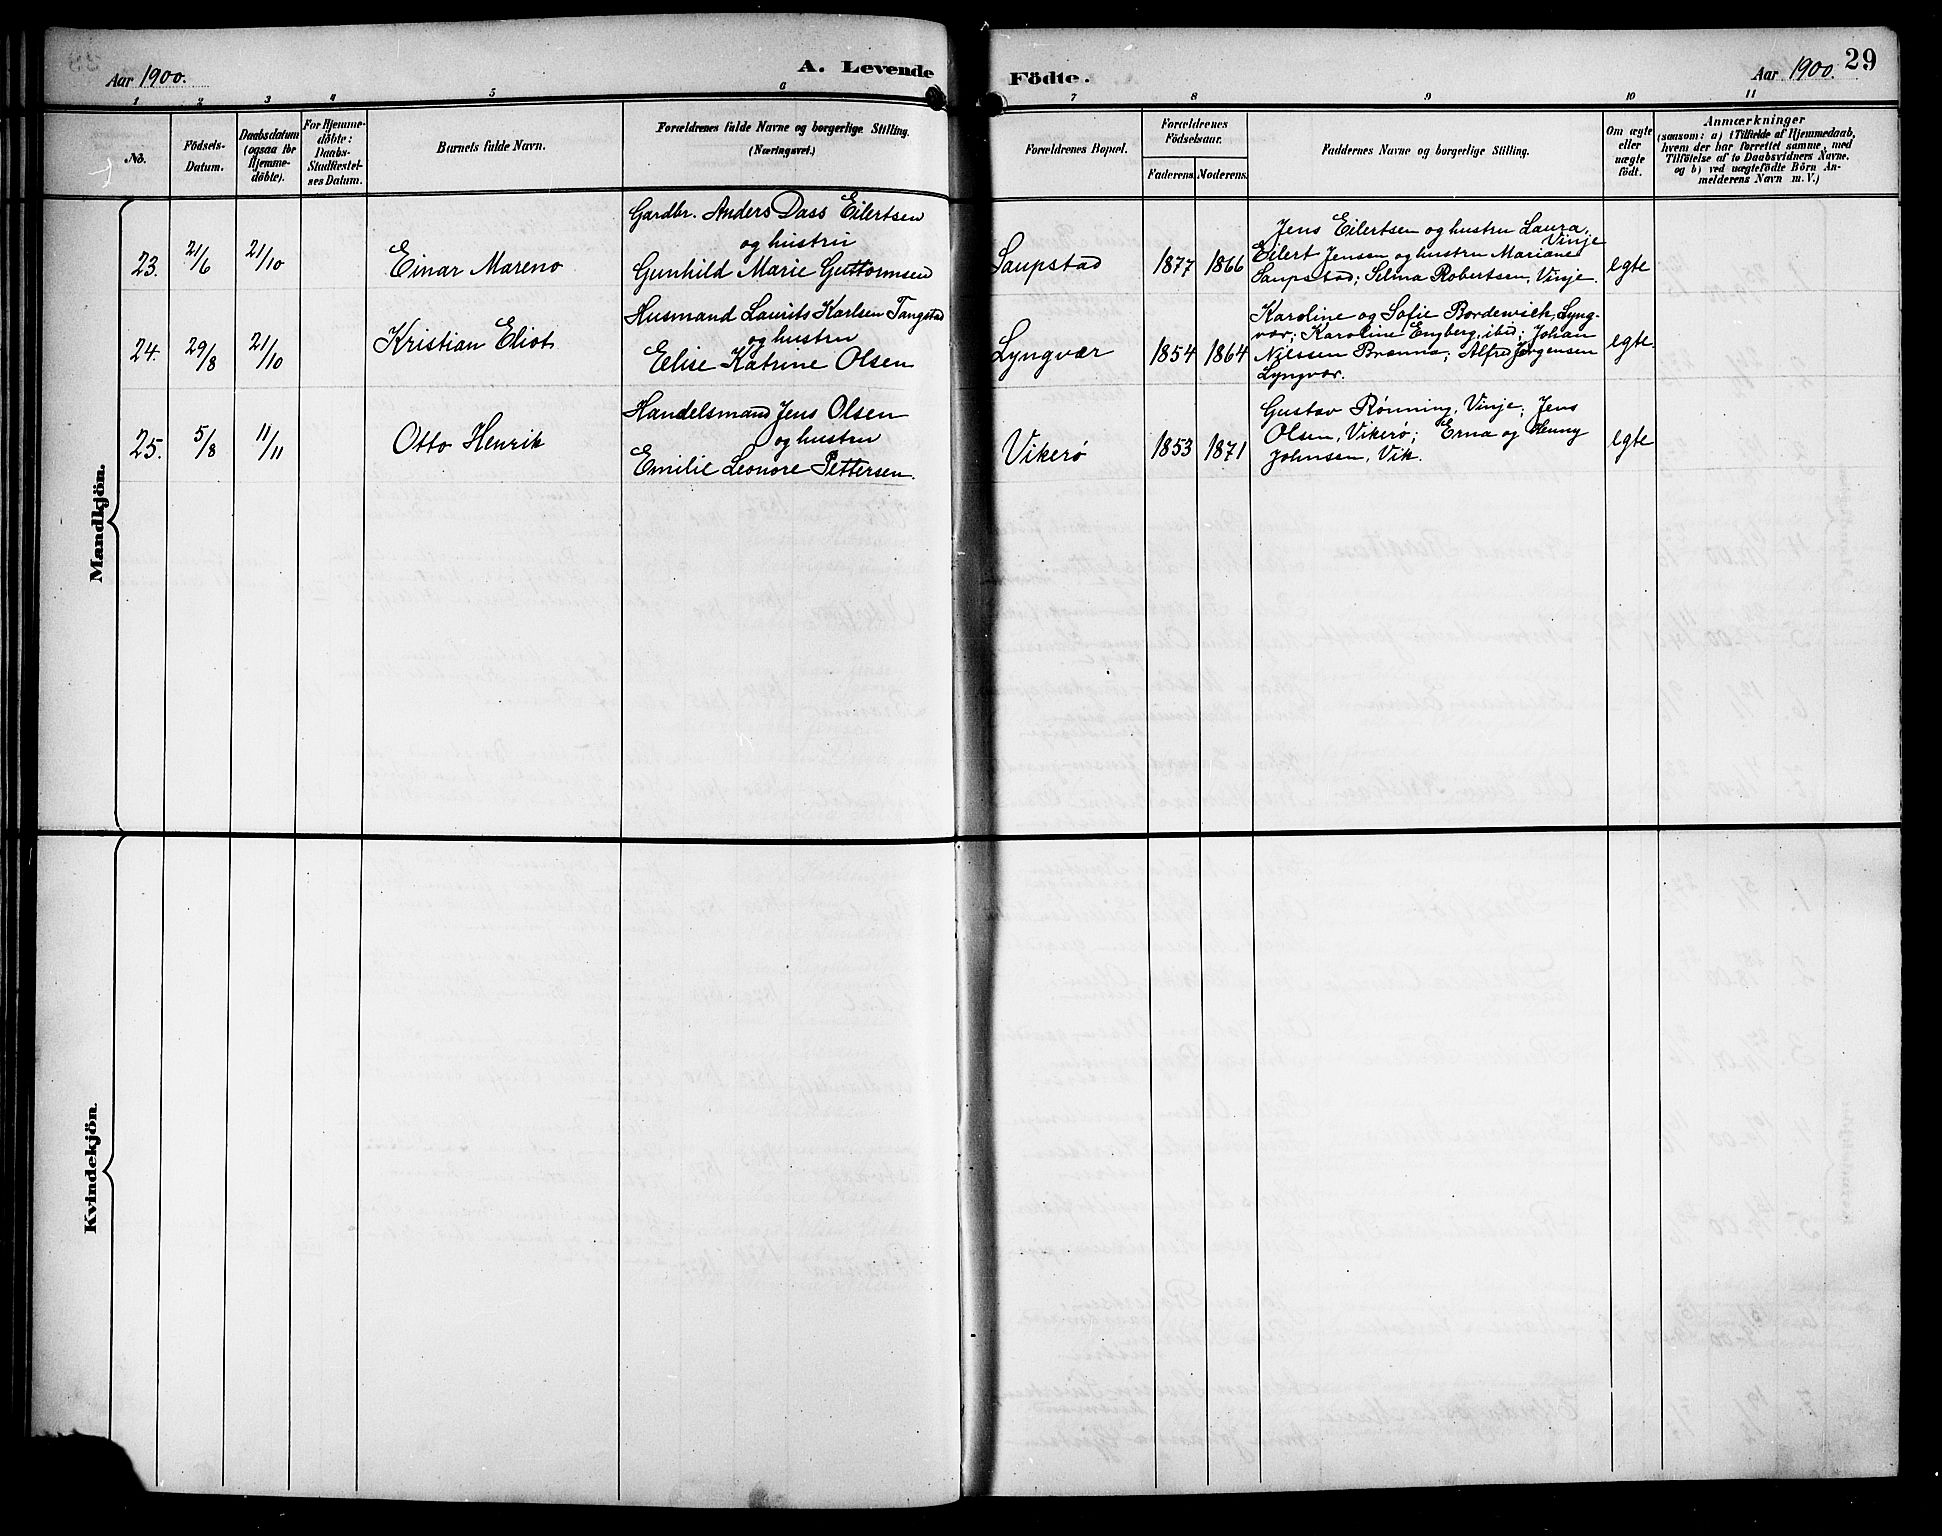 Aar 1900.
A. Levende
Födte.
Aar 1900.
29
1 2 3 4 5 6 7 8 9 10 11
No.
Födsels-
Datum.
Daabsdatum
(ogsaa for
Hjemme-
döbte).
For Hjemme-
döbte:
Daabs-
Stadfæstel-
ses Datum.
Barnets fulde Navn.
Forældrenes fulde Navne og borgerlige Stilling.
(Næringsvei.)
Forældrenes Bopæl.
Forældrenes
Födselsaar.
Faderens. Moderens.
Faddernes Navne og borgerlige Stilling.
Om ægte
eller
uægte
födt.
Anmærkninger
(saasom: a) i Tilfælde af Hjemmedaab,
hvem der har forrettet samme, med
Tilföielse af to Daabsvidners Navne.
og b) ved uægtefödte Börn An-
melderens Navn m. V.)
Mandkjön.
23. 21/6 21/10 Einar Mareno
Gardbr. Anders Dass Eilertsen
og hustru
Gunhild Marie Guttormsen
Saupstad 1877 1866
Jens Eilertsen og hustru Laura,
Vinje
Eilert Jensen og hustru Mariane
Saupstad; Selma Robertsen, Vinje.
egte
24. 29/8 21/10 Kristian Eliot
Husmand Laurits Karlsen Tangstad
og hustru
Eelise Katrine Olsen
Lyngvær 1854 1864
Karoline og Sofie Bordewich, Lyng-
vær; Karoline Engberg, ibid; Johan
Nielssen Brænna; Alfred Jørgensen
Lyngvær.
egte.
25. 5/8 11/11 Otto Henrik
Handelsmand Jens Olsen
og hustru
Emilie Leonore Pettersen.
Vikerø 1853 1871
Gustav Rønning, Vinje; Jens
Olsen, Vikerø; Erna og Henny
Johnsen, Vik.
egte
Kvindekjön.